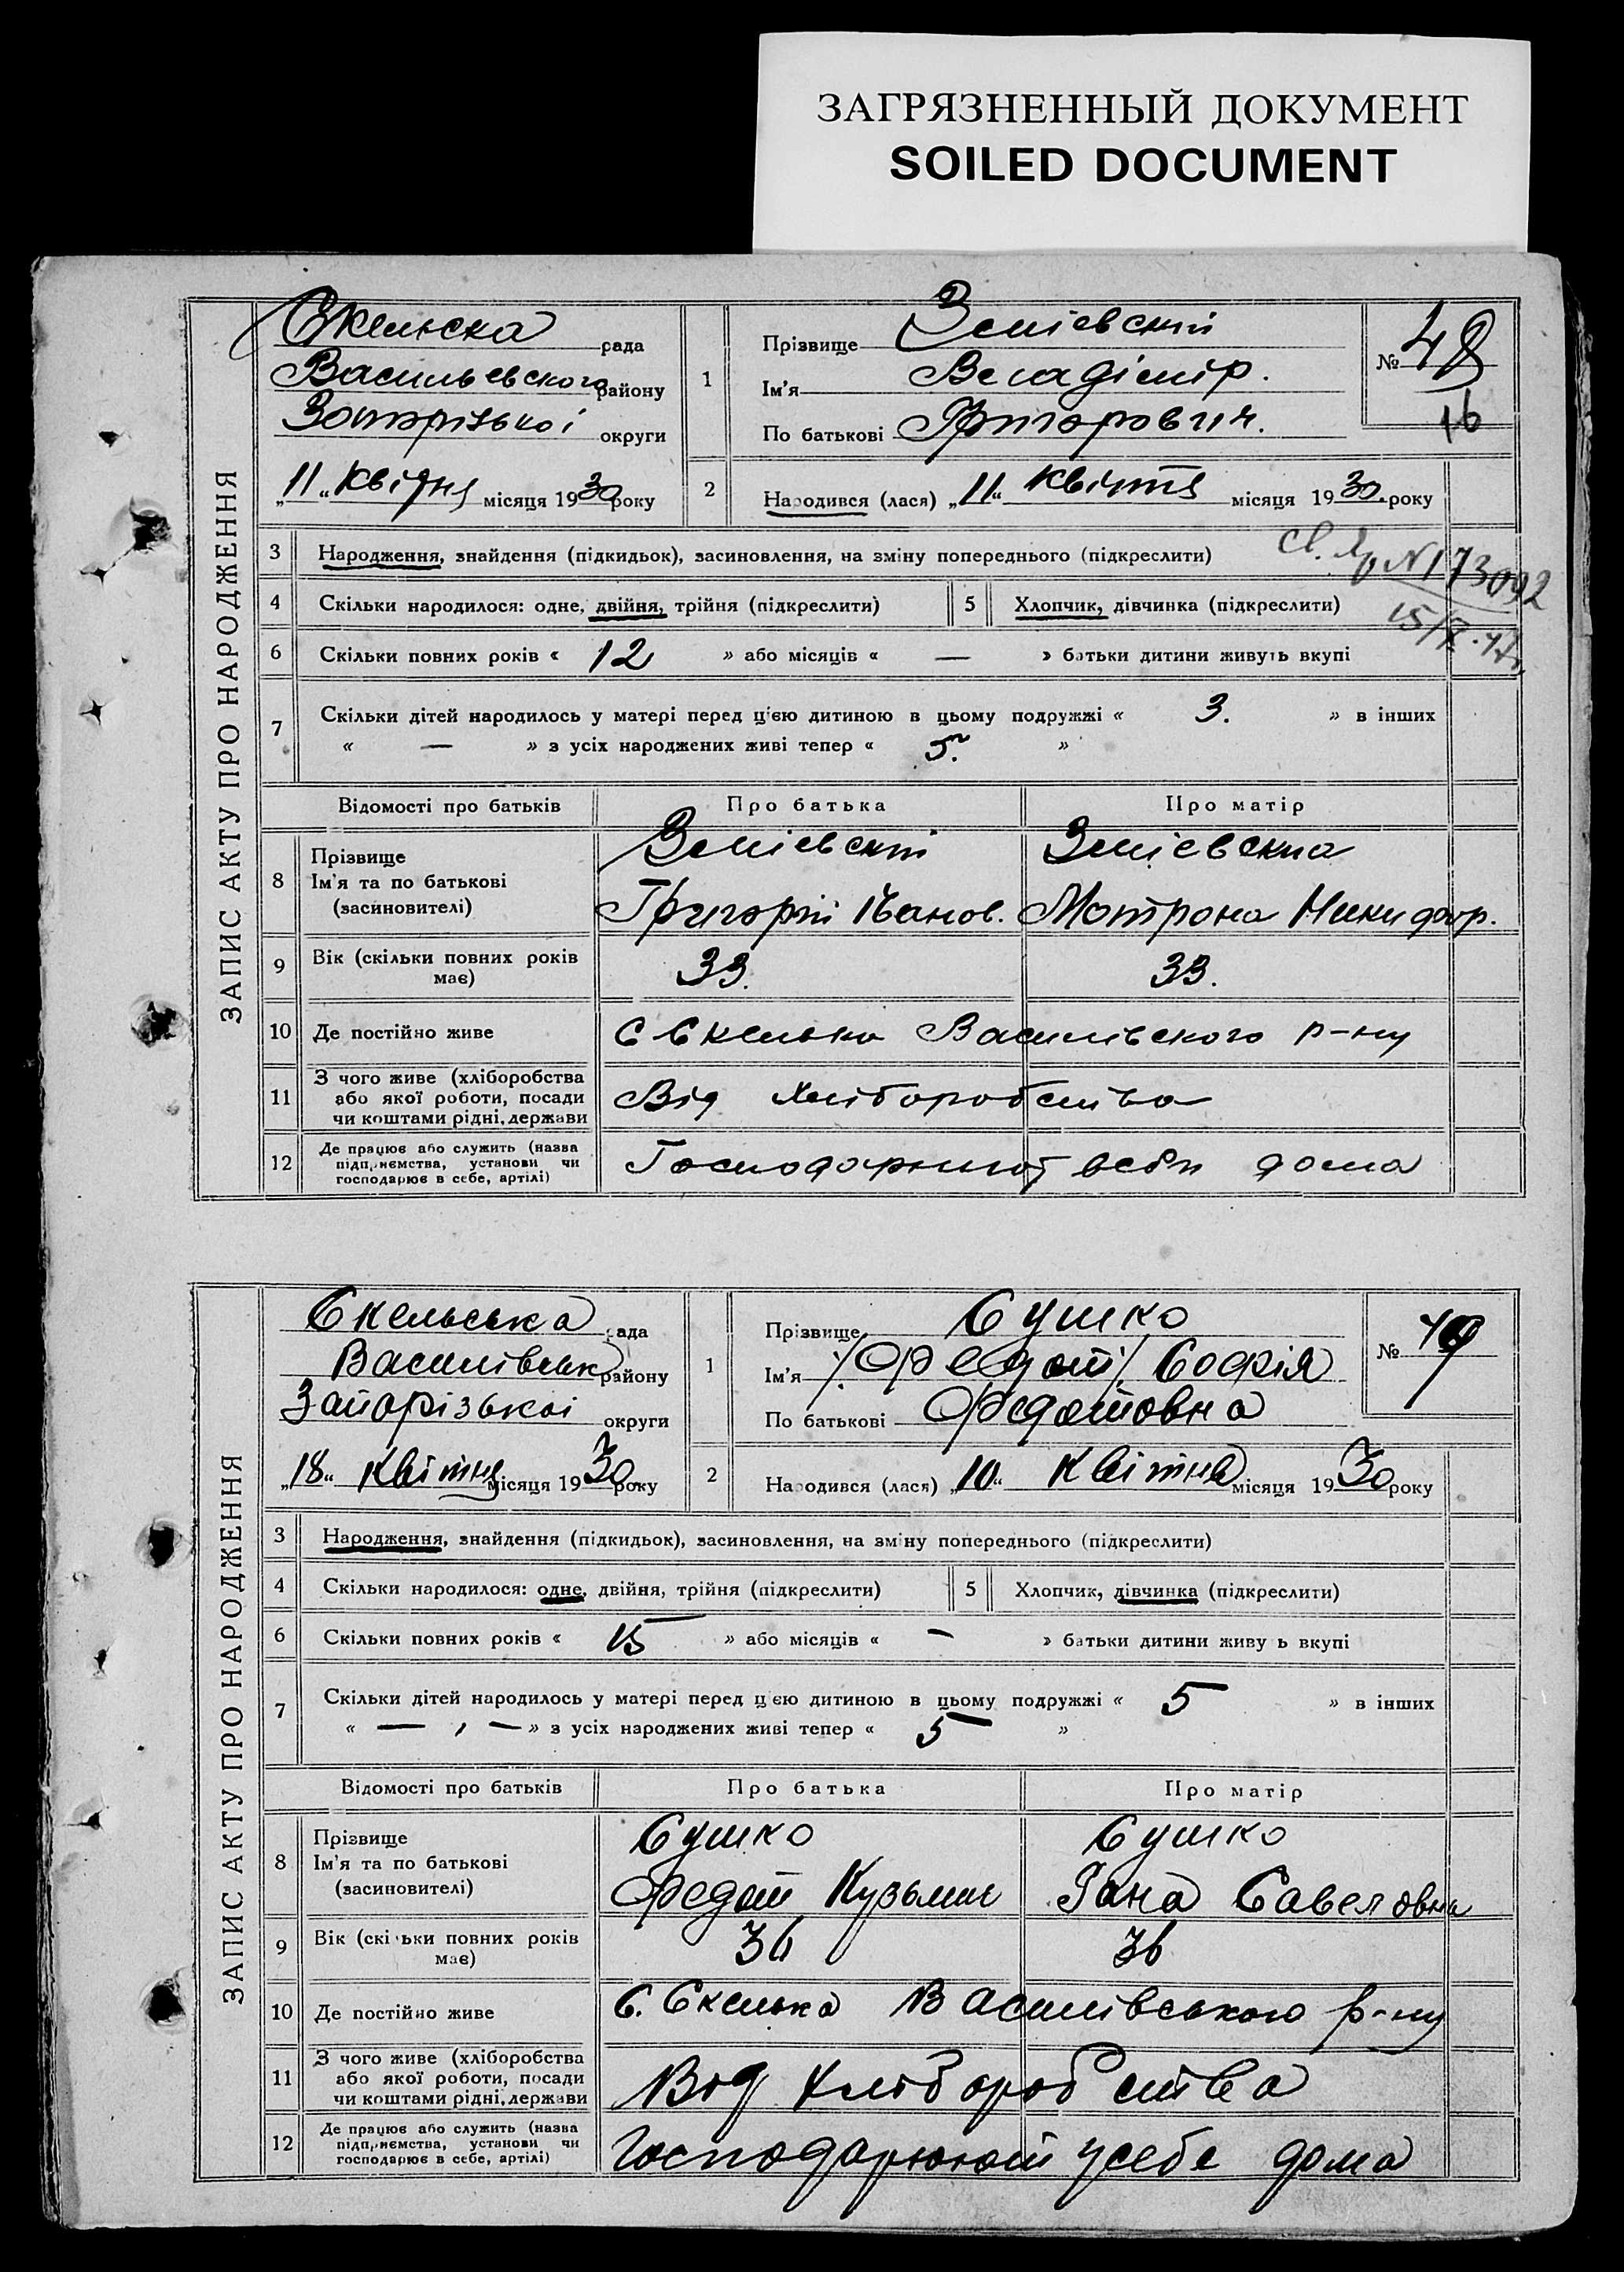 ЗАГРЯЗНЕННЫЙ ДОКУМЕНТ
SOILED DOCUMENT
ЗАПИС АКТУ ПРО НАРОДЖЕННЯ
Скельска рада
Васильевского району
Запорізької округи
„11“ Квітня місяця 1930 року
1
Прізвище Зміевский
Ім'я Владімір.
По батькові Григорович.
№ 48
16
2 Народився (лася) „11“ Квітня місяця 1930. року
3 Народження, знайдення (підкидьок), засиновлення, на зміну попереднього (підкреслити)
N 173092
4 Скільки народилося: одне, двійня, трійня (підкреслити) 5 Хлопчик, дівчинка (підкреслити)
6 Скільки повних років « 12 » або місяців « — » батьки дитини живуть вкупі
7 Скільки дітей народилось у матері перед цією дитиною в цьому подружжі « 3. » в інших
« — » з усіх народжених живі тепер « 5. »
Відомості про батьків Про батька Про матір
8 Прізвище
Ім'я та по батькові
(засиновителі)
Зміевский
Григорій Iванов.
Зміевска
Мотрона Никифор.
9 Вік (скільки повних років має) 33. 33.
10 Де постійно живе С Скелька Василівского р-ну
11 З чого живе (хліборобства
або якої роботи, посади
чи коштами рідні, держави
Від хліборобства
12 Де працює або служить (назва
підприємства, установи чи
господарює в себе, артілі)
дома
ЗАПИС АКТУ ПРО НАРОДЖЕННЯ
Скельська рада
Василівськ району
Запорізькоі округи
„18“ Квітня місяця 1930 року
1
Прізвище Сушко
Ім'я /Федот/. Софія
По батькові Федотовна
№ 49
2 Народився (лася) „10“ Квітня місяця 1930 року
3 Народження, знайдення (підкидьок), засиновлення, на зміну попереднього (підкреслити)
4 Скільки народилося: одне, двійня, трійня (підкреслити) 5 Хлопчик, дівчинка (підкреслити)
6 Скільки повних років « 15 » або місяців « – » батьки дитини живуь вкупі
7 Скільки дітей народилось у матері перед цією дитиною в цьому подружжі « 5 » в інших
« — , — » з усіх народжених живі тепер « 5 »
Відомості про батьків Про батька Про матір
8 Прізвище
Ім'я та по батькові
(засиновителі)
Сушко
Федот Кузьмич
Сушко
Савеловна
9 Вік (скільки повних років має) 36 36
10 Де постійно живе С. Скелька Василівського р-ну
11 З чого живе (хліборобства
або якої роботи, посади
чи коштами рідні, держави
Від хліборобства
12 Де працює або служить (назва
підприємства, установи чи
господарює в себе, артілі)
Господарюют усебе дома